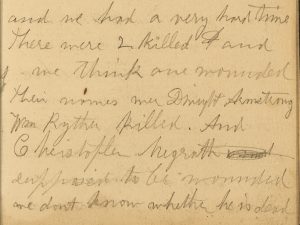 and we had a very hard time
There were 2 killed & and
we think one wounded
their names wer Dwight Armstrong
Wm Ryther killed. And
Christopher Megrath
supposed to be wounded
we dont know whether he is dead